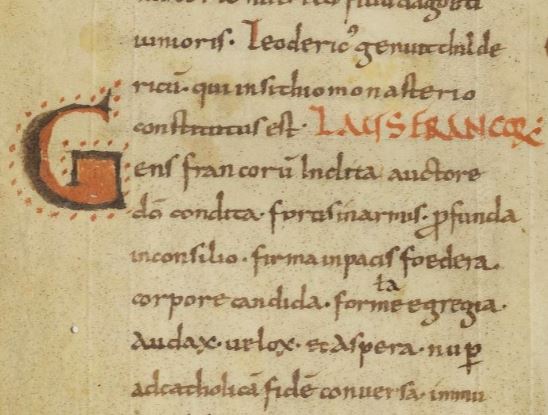 iunioris. Leoderic᾿ genuit childe
ricū. qui insithiomonasterio
constitutus est. LAUS FRANCOꝜ
Gens francorū Inclita auctore
dō condita. fortisinarmis. ꝓfunda
inconsilio. firma inpacis foedera.
corpore candida. forma egregia.
Audax. uelox. et Aspera. nuꝑ
adcatholicā fidē conversa. inmu